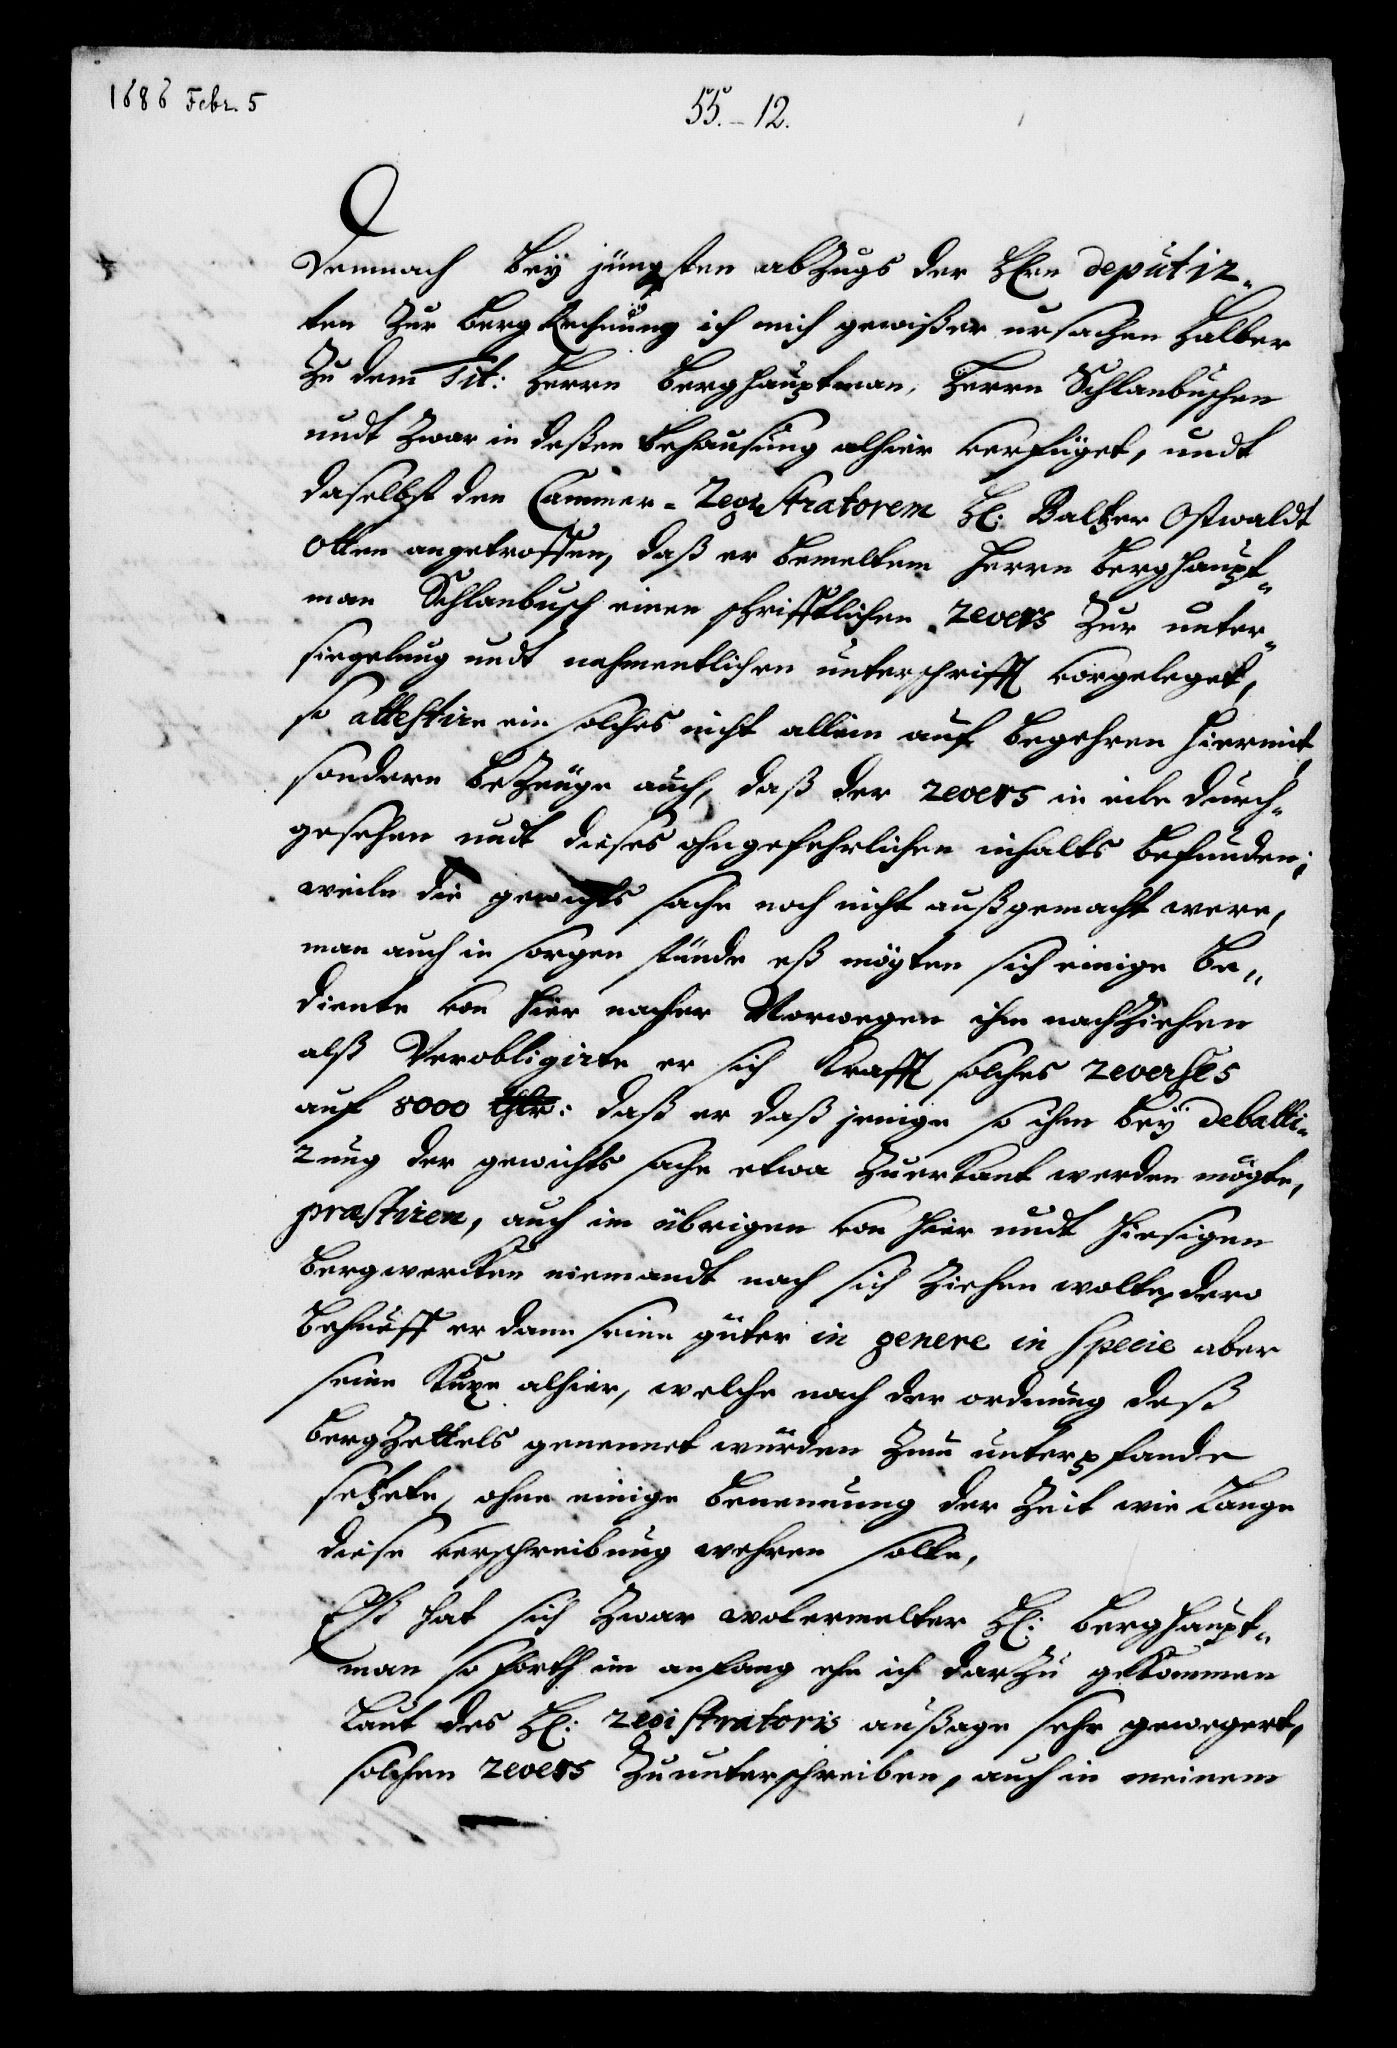 1686 Febr. 5
55.-12.
Demnach bey jüngsten abZugs der HErn deputir-
ten Zur Berg Rechnung ich mich gewißer ursachen halber
Zu dem Tit: Herrn Berghauptman, Herrn Schlanbuschen
undt Zwar in deßen behausung alhier verfüget, undt
daselbst den Cammer-Registratorem H: Baltzer Ostwaldt
Otten angetroffen, daß er bemeltem Herrn Berghaupt-
man Schlanbusch einen schrifftlichen revers Zur unter-
siegelung undt nahmentlichen unterschrifft vorgeleget,
so attestire ein solches nicht allein auf begehren hiermit
sondern beZeuge auch, daß der revers in eile durch-
gesehen undt dieses ohngefehrlichen inhalts befunden;
weiln die gewichts sache noch nicht außgemacht were,
man auch in sorgen stünde eß mögten sich einige be-
diente von hier nacher Norwegen ihm nachZiehen
alß Verobligirte er sich krafft solches reverses
auf 8000 thlr: daß er daß jenige so ihm bey debatti-
rung der gewichts sache etwa Zuerkant werden mögte,
præstiren, auch im übrigen von hier undt hiesigen
Bergwercken niemandt nach sich Ziehen wolte, dero
behueff er dann seine güter in genere in specie aber
seine Kuxe alhier, welche nach der ordnung deß
BergZettels genennet würden Zum unterpfande
setzete, ohne einige benennung der Zeit wie lange
diese verschreibung wehren solte,
Eß hat sich Zwar wolermelter H: Berghaupt-
man so forth im anfang ehe ich darZu gekommen
laut des H: registratoris außage sehr gewegert,
solchen revers Zu unterschreiben, auch in meinem